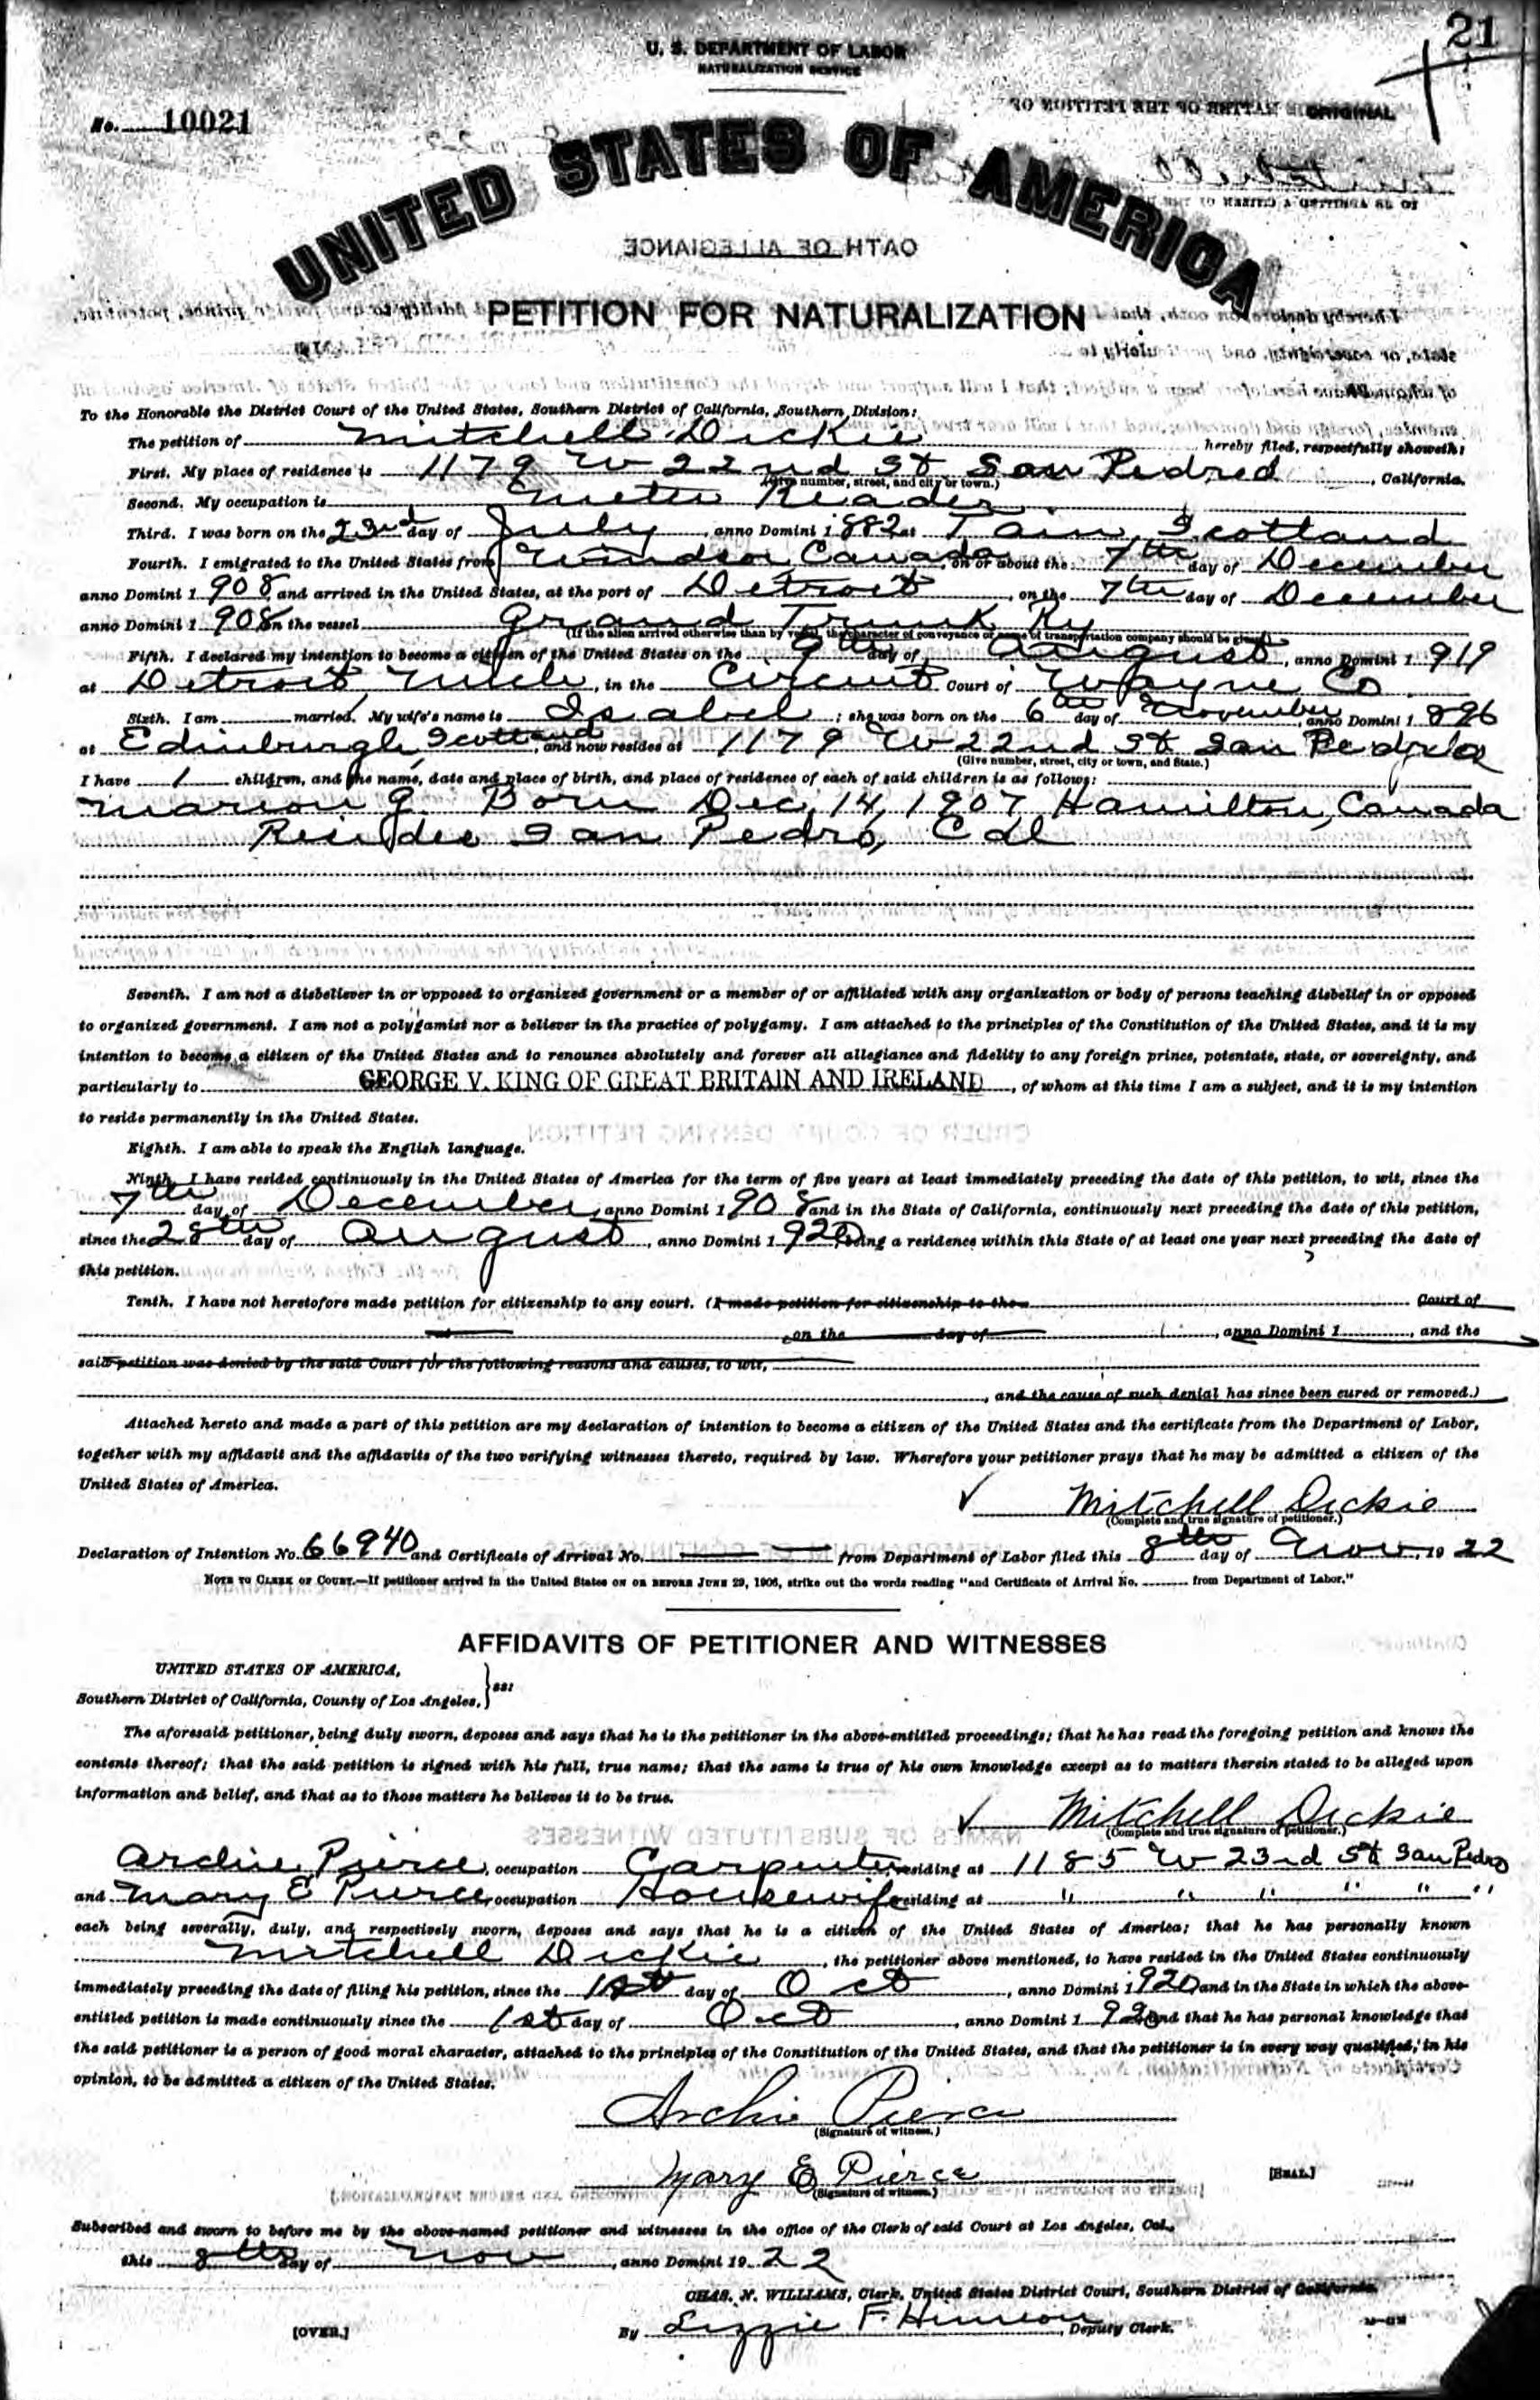 21
U. S. DEPARTMENT OF LABOR
NATURALIZATION SERVICE
No. 10021
ORIGINAL
UNITED STATES OF AMERICA
OATH OF ALLEGIANCE
PETITION FOR NATURALIZATION
To the Honorable the District Court of the United States, Southern District of California, Southern Division:
The petition of Mitchell Dickie hereby filed, respectfully showeth:
First. My place of residence is 1179 W 22nd St San Pedro, California.
(Give number, street, and city or town.)
Second. My occupation is Meter Reader
Third. I was born on the 23rd day of July, anno Domini 1882 at Tain, Scotland
Fourth. I emigrated to the United States from Windsor, Canada, on or about the 7th day of December
anno Domini 1908, and arrived in the United States, at the port of Detroit, on the 7th day of December
anno Domini 1908 on the vessel Grand Trunk Ry
(If the alien arrived otherwise than by vessel, the character of conveyance or name of transportation company should be given.)
Fifth. I declared my intention to become a citizen of the United States on the 9th day of August, anno Domini 1919
at Detroit, Mich, in the Circuit Court of Wayne Co
Sixth. I am married. My wife's name is Isabel; she was born on the 6th day of November, anno Domini 1896
at Edinburgh, Scotland, and now resides at 1179 W 22nd St San Pedro
(Give number, street, city or town, and State.)
I have 1 children, and the name, date and place of birth, and place of residence of each of said children is as follows:
Marion G. Born Dec, 14, 1907 Hamilton, Canada
Resides San Pedro, Cal
Seventh. I am not a disbeliever in or opposed to organized government or a member of or affiliated with any organization or body of persons teaching disbelief in or opposed
to organized government. I am not a polygamist nor a believer in the practice of polygamy. I am attached to the principles of the Constitution of the United States, and it is my
intention to become a citizen of the United States and to renounce absolutely and forever all allegiance and fidelity to any foreign prince, potentate, state, or sovereignty, and
particularly to GEORGE V. KING OF GREAT BRITAIN AND IRELAND, of whom at this time I am a subject, and it is my intention
to reside permanently in the United States.
Eighth. I am able to speak the English language.
Ninth. I have resided continuously in the United States of America for the term of five years at least immediately preceding the date of this petition, to wit, since the
7th day of December, anno Domini 1908 and in the State of California, continuously next preceding the date of this petition,
since the 28th day of August, anno Domini 1920, being a residence within this State of at least one year next preceding the date of
this petition.
Tenth. I have not heretofore made petition for citizenship to any court. (I made petition for citizenship to the Court of
at, on the day of, anno Domini 1, and the
said petition was denied by the said Court for the following reasons and causes, to wit,
, and the cause of such denial has since been cured or removed.)
Attached hereto and made a part of this petition are my declaration of intention to become a citizen of the United States and the certificate from the Department of Labor,
together with my affidavit and the affidavits of the two verifying witnesses thereto, required by law. Wherefore your petitioner prays that he may be admitted a citizen of the
United States of America.
Mitchell Dickie
(Complete and true signature of petitioner.)
Declaration of Intention No. 66940 and Certificate of Arrival No. from Department of Labor filed this 8th day of Nov, 1922
NOTE TO CLERK OF COURT.—If petitioner arrived in the United States ON OR BEFORE JUNE 29, 1906, strike out the words reading "and Certificate of Arrival No. from Department of Labor."
AFFIDAVITS OF PETITIONER AND WITNESSES
UNITED STATES OF AMERICA,
Southern District of California, County of Los Angeles, } ss:
The aforesaid petitioner, being duly sworn, deposes and says that he is the petitioner in the above-entitled proceedings; that he has read the foregoing petition and knows the
contents thereof; that the said petition is signed with his full, true name; that the same is true of his own knowledge except as to matters therein stated to be alleged upon
information and belief, and that as to those matters he believes it to be true.
Mitchell Dickie
(Complete and true signature of petitioner.)
Archie Pierce, occupation Carpenter, residing at 1185 W 23rd St San Pedro
and Mary E Pierce, occupation Housewife residing at " " " " " "
each being severally, duly, and respectively sworn, deposes and says that he is a citizen of the United States of America; that he has personally known
Mitchell Dickie, the petitioner above mentioned, to have resided in the United States continuously
immediately preceding the date of filing his petition, since the 1st day of Oct, anno Domini 1920 and in the State in which the above-
entitled petition is made continuously since the 1st day of Oct, anno Domini 1920 and that he has personal knowledge that
the said petitioner is a person of good moral character, attached to the principles of the Constitution of the United States, and that the petitioner is in every way qualified, in his
opinion, to be admitted a citizen of the United States.
Archie Pierce
(Signature of witness.)
Mary E Pierce
(Signature of witness.)
[SEAL.]
Subscribed and sworn to before me by the above-named petitioner and witnesses in the office of the Clerk of said Court at Los Angeles, Cal.,
this 8th day of Nov, anno Domini 1922
CHAS. N. WILLIAMS, Clerk, United States District Court, Southern District of California.
[OVER.]
By Lizzie F., Deputy Clerk.